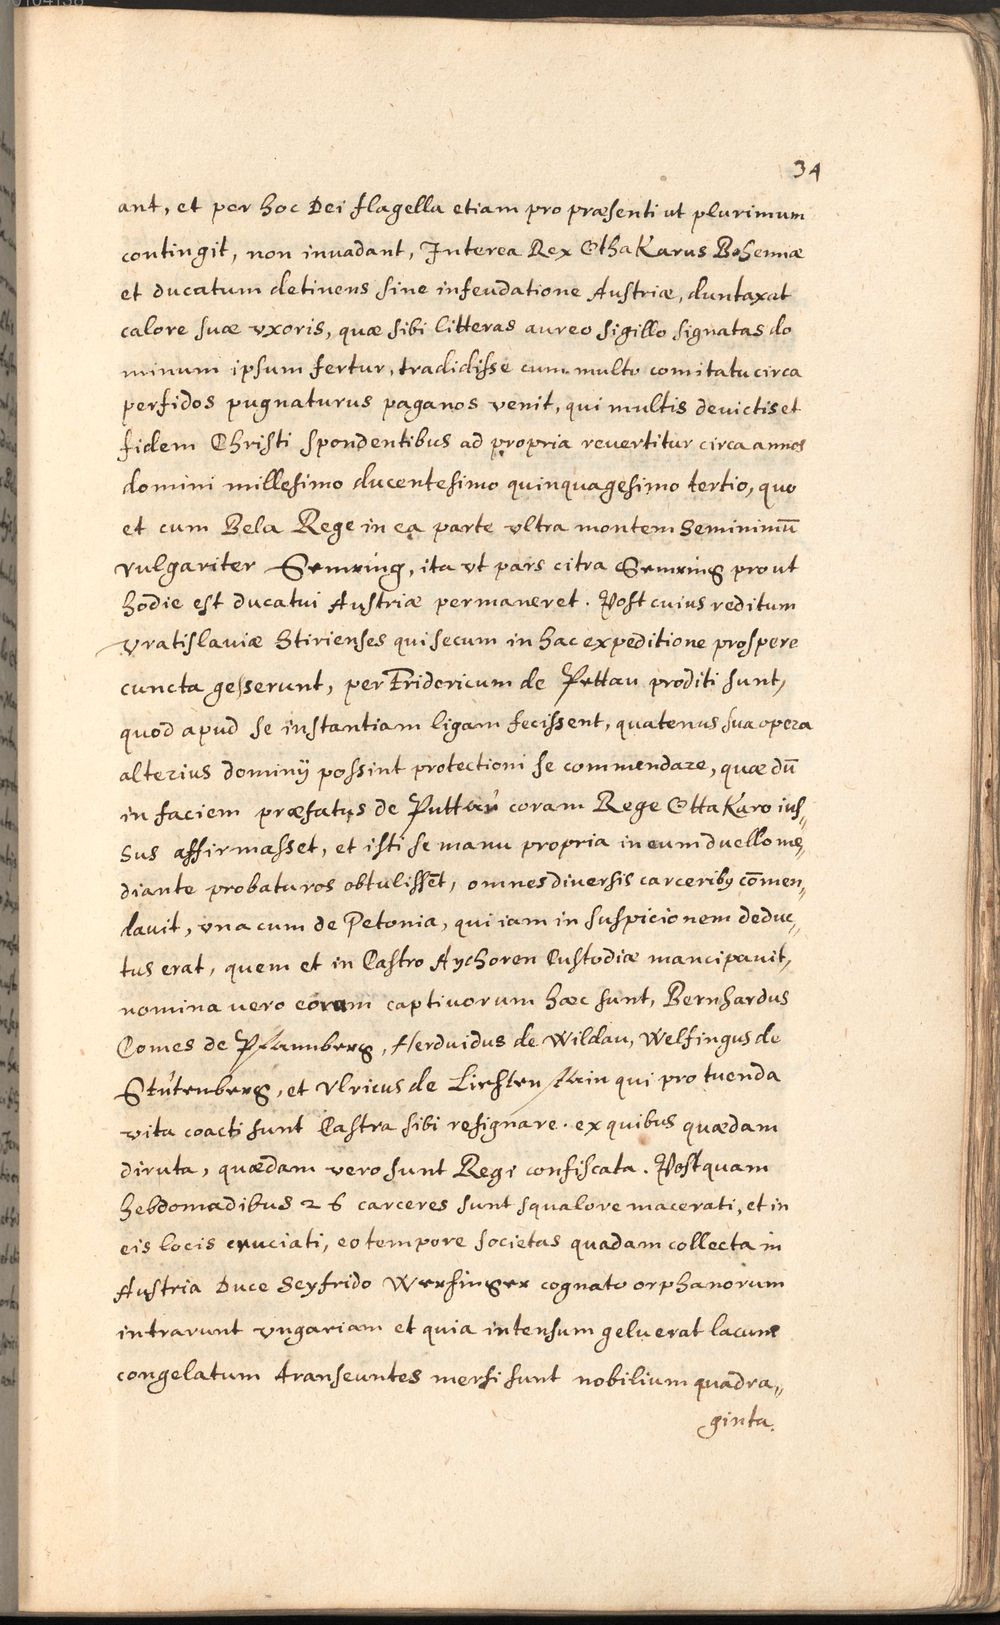 34
ant, et per hoc Dei flagella etiam pro præsenti ut plurimum
contingit, non inuadant, Interea Rex OthaKarus Bohemiæ
et ducatum detinens sine infeudatione Austriæ, duntaxat
calore suæ vxoris, quæ sibi litteras aureo sigillo signatas do
minum ipsum fertur, tradidisse cum multo comitatu circa
perfidos pugnaturus paganos venit, qui multis deuictis et
fidem Christi spondentibus ad propria reuertitur circa annos
domini millesimo ducentesimo quinquagesimo tertio, quo
et cum Bela Rege in ea parte vltra montem Seminimū
vulgariter Semring, ita vt pars citra Semring prout
hodie est ducatui Austriæ permaneret. Post cuius reditum
vratislauiæ Stirienses qui secum in hac expeditione prospere
cuncta gesserunt, per Fridericum de Pettau proditi sunt,
quod apud se instantiam ligam fecissent, quatenus sua opera
alterius dominÿ possint protectioni se commendare, quæ dū
in faciem præfatus de Puttau coram Rege OttaKaro ius„
sus affirmasset, et isti se manu propria in eum duello me„
diante probaturos obtulissēt, omnes diuersis carceriby cōmen„
dauit, vna cum de Petonia, qui iam in suspicionem deduc„
tus erat, quem et in Castro Aychoren Custodiæ mancipauit,
nomina vero eorum captiuorum hæc sunt, Bernhardus
Comes de Pfannberg, Herduidus de Wildau, Welfingus de
Stútenberg, et Vlricus de Liechtenstain qui pro tuenda
vita coacti sunt Castra sibi resignare. ex quibus quædam
diruta, quædam vero sunt Regi confiscata. Postquam
hebdomadibus 26 carceres sunt squalore macerati, et in
eis locis cruciati, eo tempore societas quadam collecta in
Austria Duce Seyfrido Wersinger cognato orphanorum
intrarunt vngariam et quia intensum gelu erat lacum
congelatum transeuntes mersi sunt nobilium quadra„
ginta.